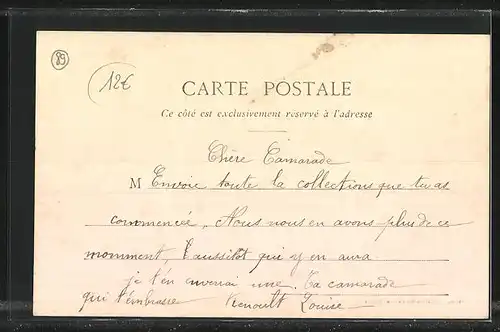 89
12€
CARTE POSTALE
Ce côté est exclusivement reservé à l'adresse
Chère Camarade
M Envoie toute la collections que tu as
commencée, Nous nous en avons plus de ce
momment, l'aussitot qui y en aura
je t'en envenai une. Ta camarade
qui t'embrasse Renoult Louise